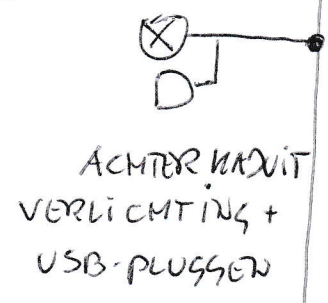 ACHTER KAJUIT
VERLICHTING +
USB-PLUGGEN